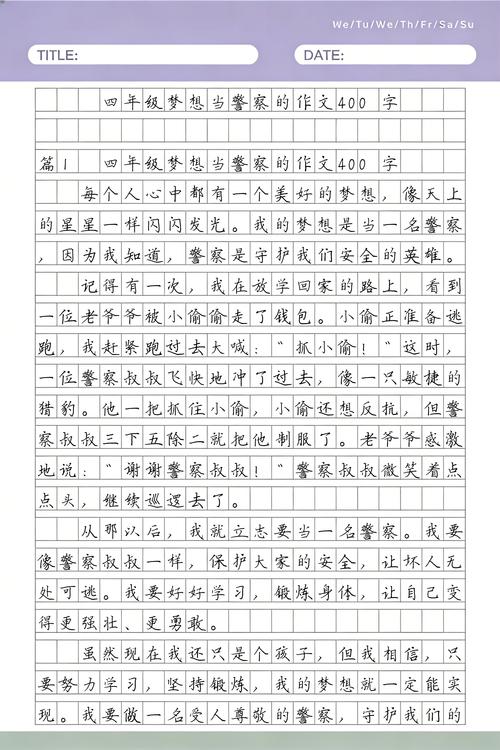 We/Tu/We/Th/Fr/Sa/Su
TITLE: DATE:
四年级梦想当警察的作文400 字
篇1 四年级梦想当警察的作文400 字
每个人心中都有一个美好的梦想，像天上
的星星一样闪闪发光。我的梦想是当一名警察
，因为我知道，警察是守护我们安全的英雄。
记得有一次，我在放学回家的路上，看到
一位老爷爷被小偷偷走了钱包。小偷正准备逃
跑，我赶紧跑过去大喊：“抓小偷！”这时，
一位警察叔叔飞快地冲了过去，像一只敏捷的
猎豹。他一把抓住小偷，小偷还想反抗，但警
察叔叔三下五除二就把他制服了。老爷爷感激
地说：“谢谢警察叔叔！”警察叔叔微笑着点
点头，继续巡逻去了。
从那以后，我就立志要当一名警察。我要
像警察叔叔一样，保护大家的安全，让坏人无
处可逃。我要好好学习，锻炼身体，让自己变
得更强壮、更勇敢。
虽然现在我还只是个孩子，但我相信，只
要努力学习，坚持锻炼，我的梦想就一定能实
现。我要做一名受人尊敬的警察，守护我们的